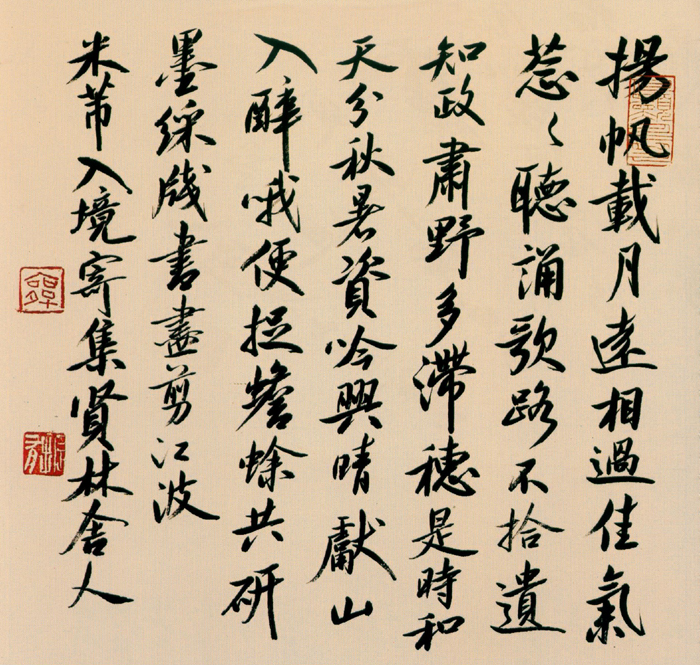 揚帆載月遠相過佳氣
葱々聽誦歌路不拾遺
知政肅野多滯穗是時和
天分秋暑資吟興晴獻山
入醉哦便捉蟾蜍共研
墨綵牋書盡剪江波
米芾入境寄集賢林舍人